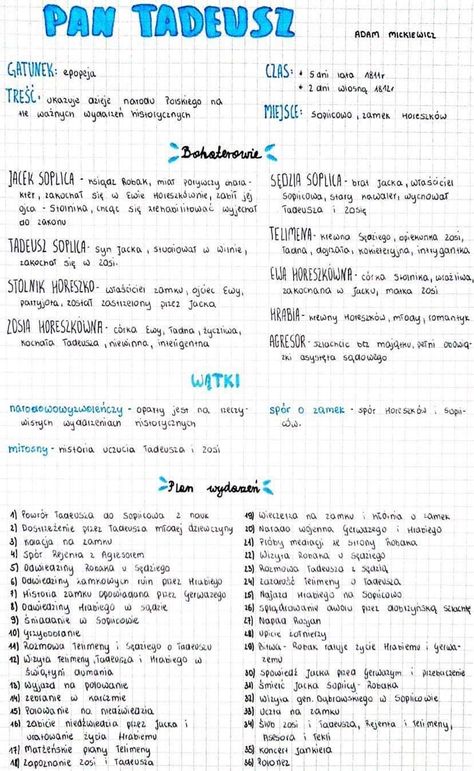 PAN TADEUSZ
ADAM MICKIEWICZ
GATUNEK: epopeja
TREŚĆ: ukazuje dzieje narodu Polskiego na
tle ważnych wydarzeń historycznych
CZAS: * 5 dni lata 1811r
* 2 dni wiosną 1812r
MIEJSCE: Soplicowo, zamek Horeszków
Bohaterowie
JACEK SOPLICA - ksiądz Robak, miał porywczy chara-
kter, zakochał się w Ewie Horeszkównie, zabił jej
ojca - Stolnika, chcąc się zrehabilitować wyjechał
do zakonu
TADEUSZ SOPLICA - syn Jacka, studiował w Wilnie,
zakochał się w Zosi.
STOLNIK HORESZKO - właściciel zamku, ojciec Ewy,
patryjota, został zastrzelony przez Jacka
ZOSIA HORESZKÓWNA - córka Ewy, ładna, życzliwa,
kochała Tadeusza, niewinna, inteligentna
SĘDZIA SOPLICA - brat Jacka, właściciel
Soplicowa, stary kawaler, wychował
Tadeusza i Zosię
TELIMENA - krewna Sędziego, opiekunka Zosi,
ładna, dojrzała, kokieteryjna, intrygantka
EWA HORESZKÓWNA - córka Stolnika, wrażliwa,
zakochana w Jacku, matka Zosi
HRABIA - krewny Horeszków, młody, romantyk
AGRESOR - szlachcic bez majątku, pełni obowią-
zki asysteta sądowego
WĄTKI
narodowowyzwoleńczy - oparty jest na rzeczy-
wistych wydarzeniach historycznych
miłosny - historia uczucia Tadeusza i Zosi
spór o zamek - spór Horeszków i Sopli-
ców.
Plan wydarzeń
1) Powrót Tadeusza do Soplicowa z nauk
2) Dostrzeżenie przez Tadeusza młodej dziewczyny
3) Kolacja na zamku
4) Spór Rejenta z Agresorem
5) Odwiedziny Robaka u Sędziego
6) Odwiedziny zamkowych ruin przez Hrabiego
7) Historia zamku opowiadana przez Gerwazego
8) Odwiedziny Hrabiego w sądzie
9) Śniadanie w Soplicowie
10) Grzybobranie
11) Rozmowa Telimeny i Sędziego o Tadeuszu
12) Wizyta Telimeny, Tadeusza i Hrabiego w
świątyni dumania
13) Wyjazd na polowanie
14) Zebranie w karczmie
15) Polowanie na niedźwiedzia
16) Zabicie niedźwiedzia przez Jacka i
uratowanie życia Hrabiemu
17) Małżeńskie plany Telimeny
18) Zapoznanie Zosi i Tadeusza
19) Wieczerza na zamku i kłótnia o zamek
20) Narada wojenna Gerwazego i Hrabiego
21) Próby mediacji ze strony Robaka
22) Wizyta Robaka u Sędziego
23) Rozmowa Tadeusza z Sędzią
24) Zazdrość Telimeny o Tadeusza
25) Najazd Hrabiego na Soplicowo
26) Splądrowanie dworu przez dobrzyńską szlachtę
27) Napad Rosjan
28) Upicie żołnierzy
29) Bitwa - Robak ratuje życie Hrabiemu i Gerwa-
zemu
30) Spowiedź Jacka przed Gerwazym i przebaczenie
31) Śmierć Jacka Soplicy - Robaka
32) Wizyta gen. Dąbrowskiego w Soplicowie
33) Uczta na zamku
34) Ślub Zosi i Tadeusza, Rejenta i Telimeny,
Asesora i Tekli
35) Koncert Jankiela
36) Polonez